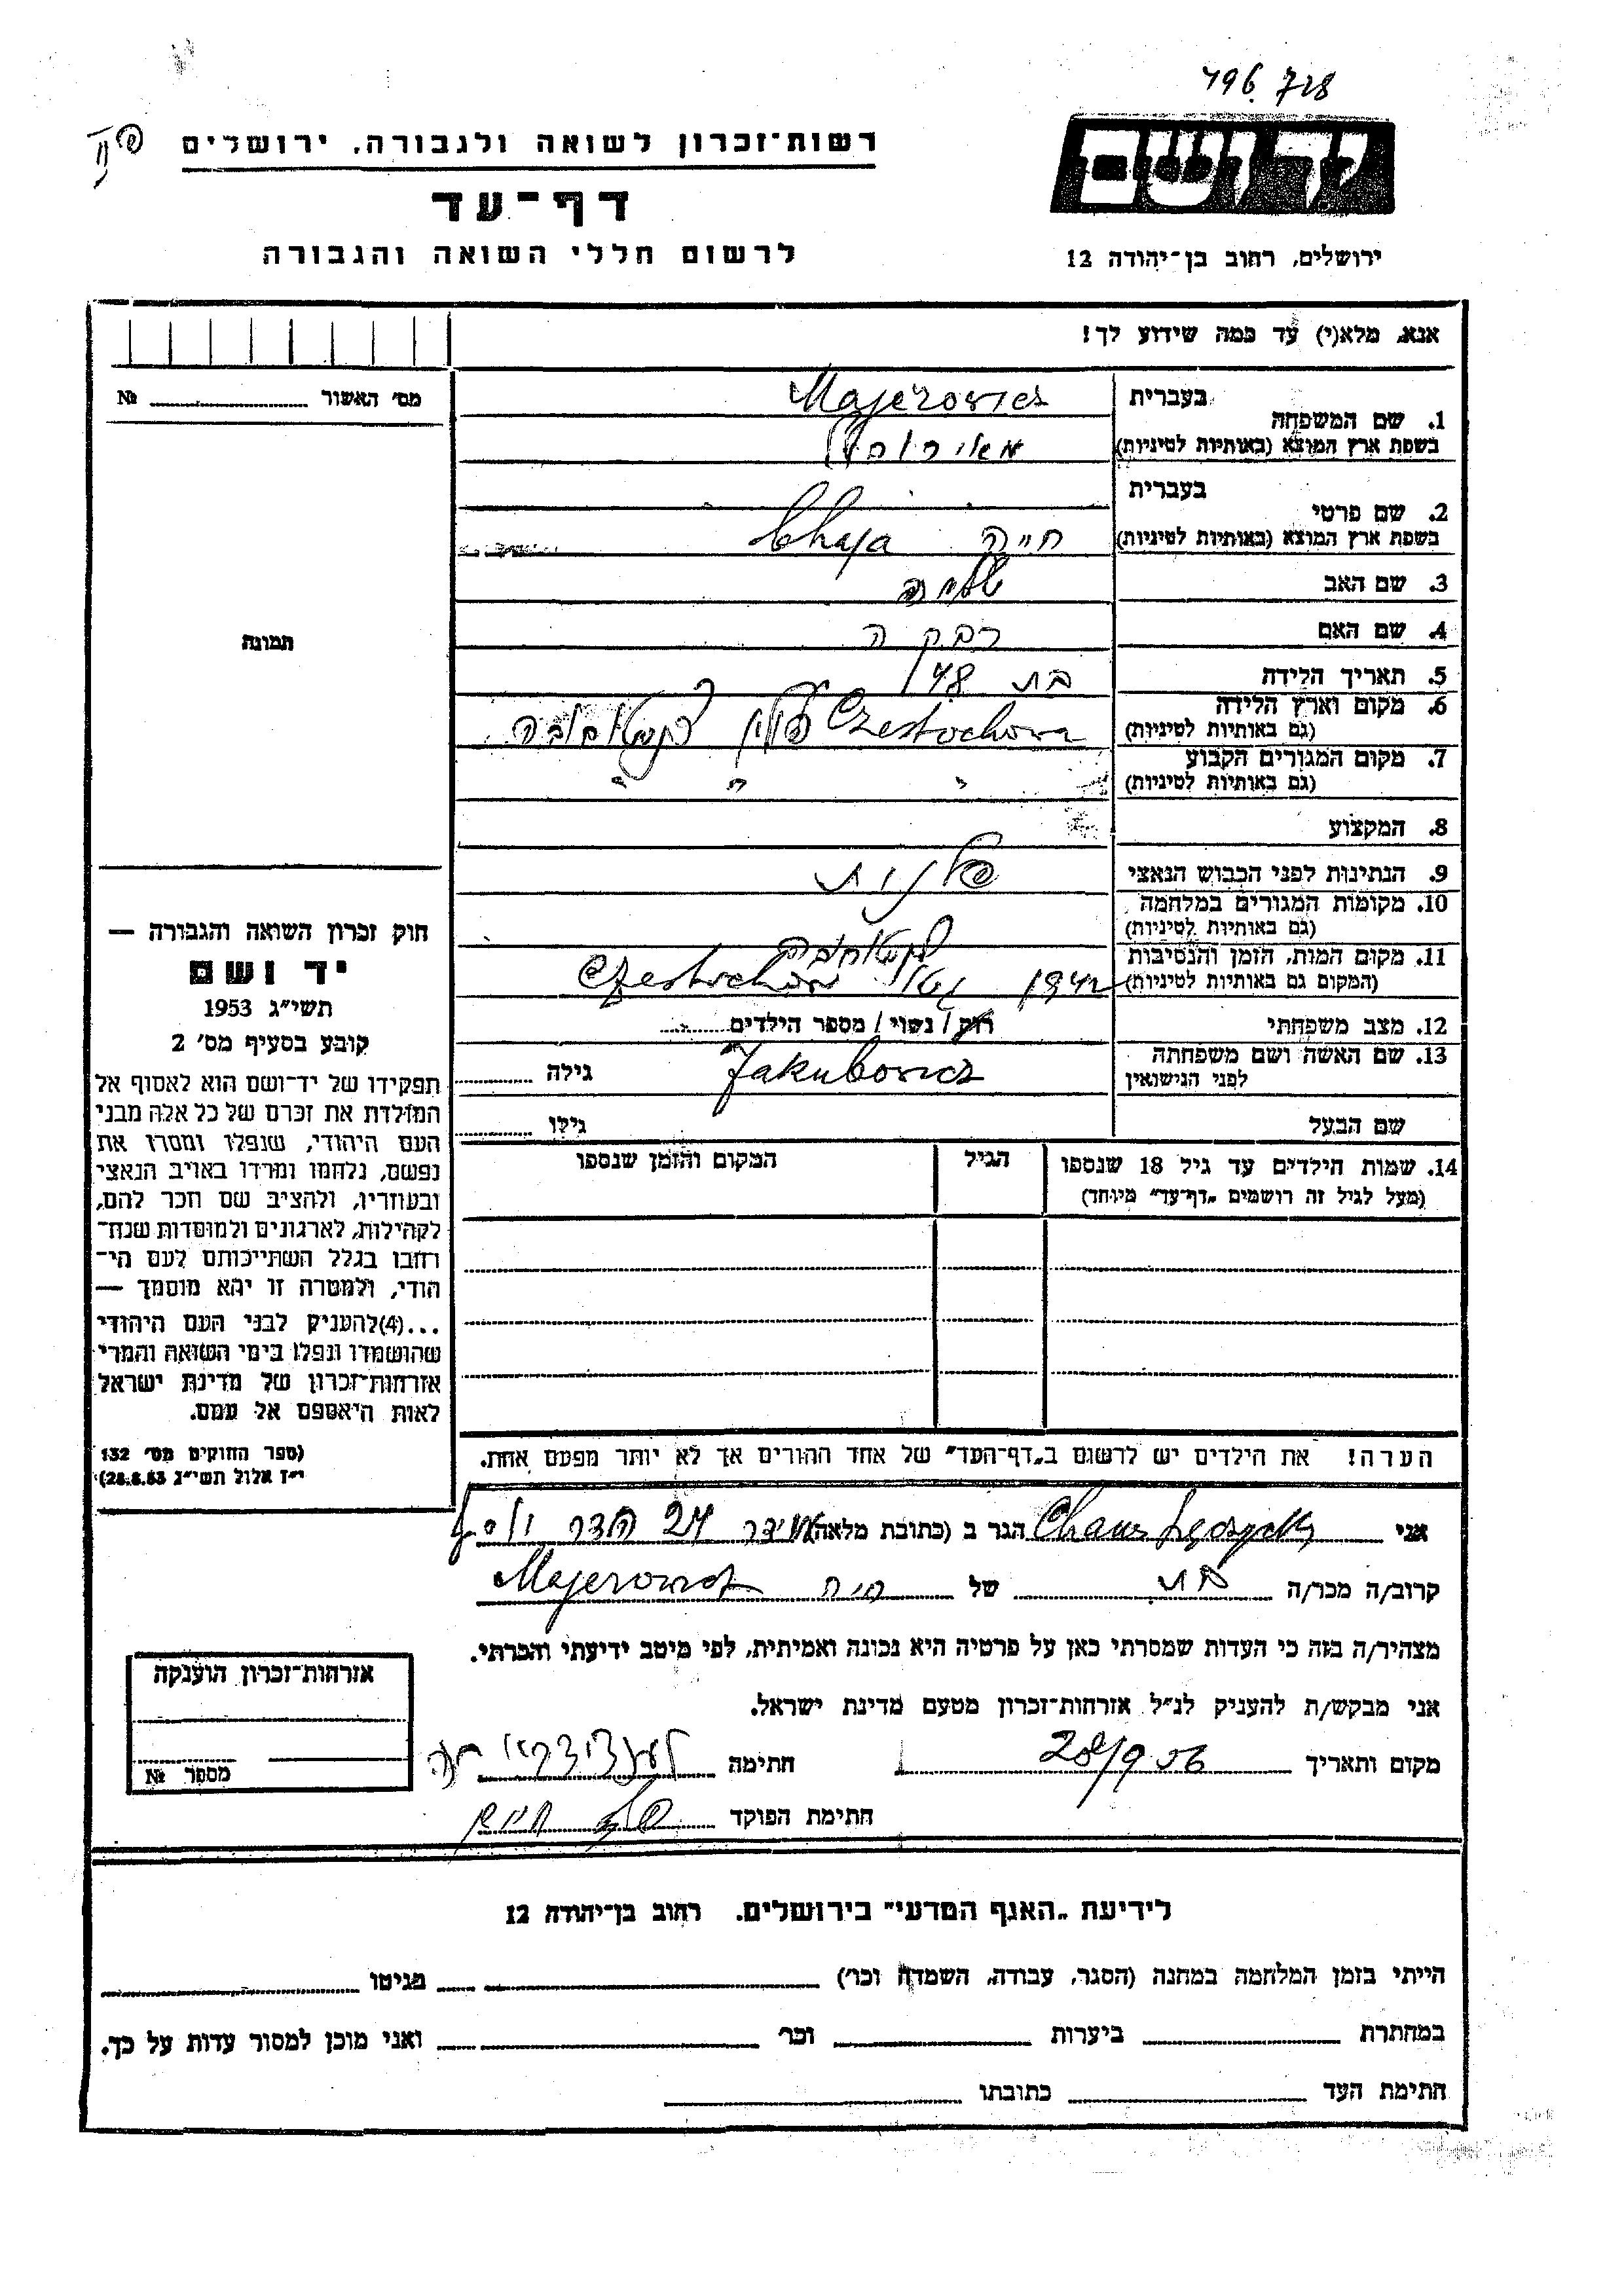 496.728
יד ושם
ירושלים, רחוב בן־יהודה 12
רשות־זכרון לשואה ולגבורה, ירושלים
דף־עד
לרשום חללי השואה והגבורה
אנא, מלא(י) עד כמה שידוע לך!
מס׳ האשור № 
1. שם המשפחה בעברית Majerowicz
בשפת ארץ המוצא (באותיות לטיניות)
2. שם פרטי בעברית
בשפת ארץ המוצא (באותיות לטיניות) חייה Chaja
3. שם האב
4. שם האם רבקה
5. תאריך הלידה בת 48
6. מקום וארץ הלידה Czestochowa פולין
(גם באותיות לטיניות)
7. מקום המגורים הקבוע " " "
(גם באותיות לטיניות)
8. המקצוע
9. הנתינות לפני הכבוש הנאצי פולנית
10. מקומות המגורים במלחמה
(גם באותיות לטיניות)
11. מקום המות, הזמן והנסיבות
(המקום גם באותיות לטיניות) 1942 גטו Czestochowa
12. מצב משפחתי רוק / נשוי / מספר הילדים
13. שם האשה ושם משפחתה
לפני הנישואין Jakubowicz גילה
שם הבעל גילו
14. שמות הילדים עד גיל 18 שנספו
(מעל לגיל זה רושמים „דף־עד״ מיוחד)
הגיל
המקום והזמן שנספו
תמונה
חוק זכרון השואה והגבורה —
יד ושם
תשי״ג 1953
קובע בסעיף מס׳ 2
תפקידו של יד־ושם הוא לאסוף אל
המולדת את זכרם של כל אלה מבני
העם היהודי, שנפלו ומסרו את
נפשם, נלחמו ומרדו באויב הנאצי
ובעוזריו, ולהציב שם וזכר להם,
לקהילות, לארגונים ולמוסדות שנח־
רחבו בגלל השתייכותם לעם הי־
הודי, ולמטרה זו יהא מוסמך —
...(4)להעניק לבני העם היהודי
שהושמדו ונפלו בימי השואה והמרי
אזרחות־זכרון של מדינת ישראל
לאות היאספם אל עמם.
(ספר החוקים מס׳ 132
י״ז אלול תשי״ג 28.8.53)
הערה! את הילדים יש לרשום ב„דף־העד״ של אחד ההורים אך לא יותר מפעם אחת.
אני הגר ב (כתובת מלאה) 27
קרוב/ה מכר/ה בת של חיה Majerowicz
מצהיר/ה בזה כי העדות שמסרתי כאן על פרטיה היא נכונה ואמיתית, לפי מיטב ידיעתי והכרתי.
אני מבקש/ת להעניק לנ״ל אזרחות־זכרון מטעם מדינת ישראל.
מקום ותאריך 28/9.56 חתימה
חתימת הפוקד
אזרחות־זכרון הוענקה
מספר №
לידיעת „האגף המדעי״ בירושלים. רחוב בן־יהודה 12
הייתי בזמן המלחמה במחנה (הסגר, עבודה, השמדה וכר׳) מגיטו
במחתרת ביערות וכר׳ ואני מוכן למסור עדות על כך.
חתימת העד כתובתו